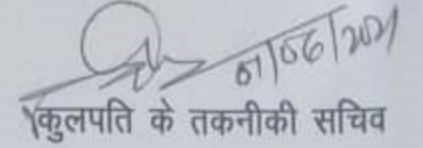 01/06/2021
कुलपति के तकनीकी सचिव